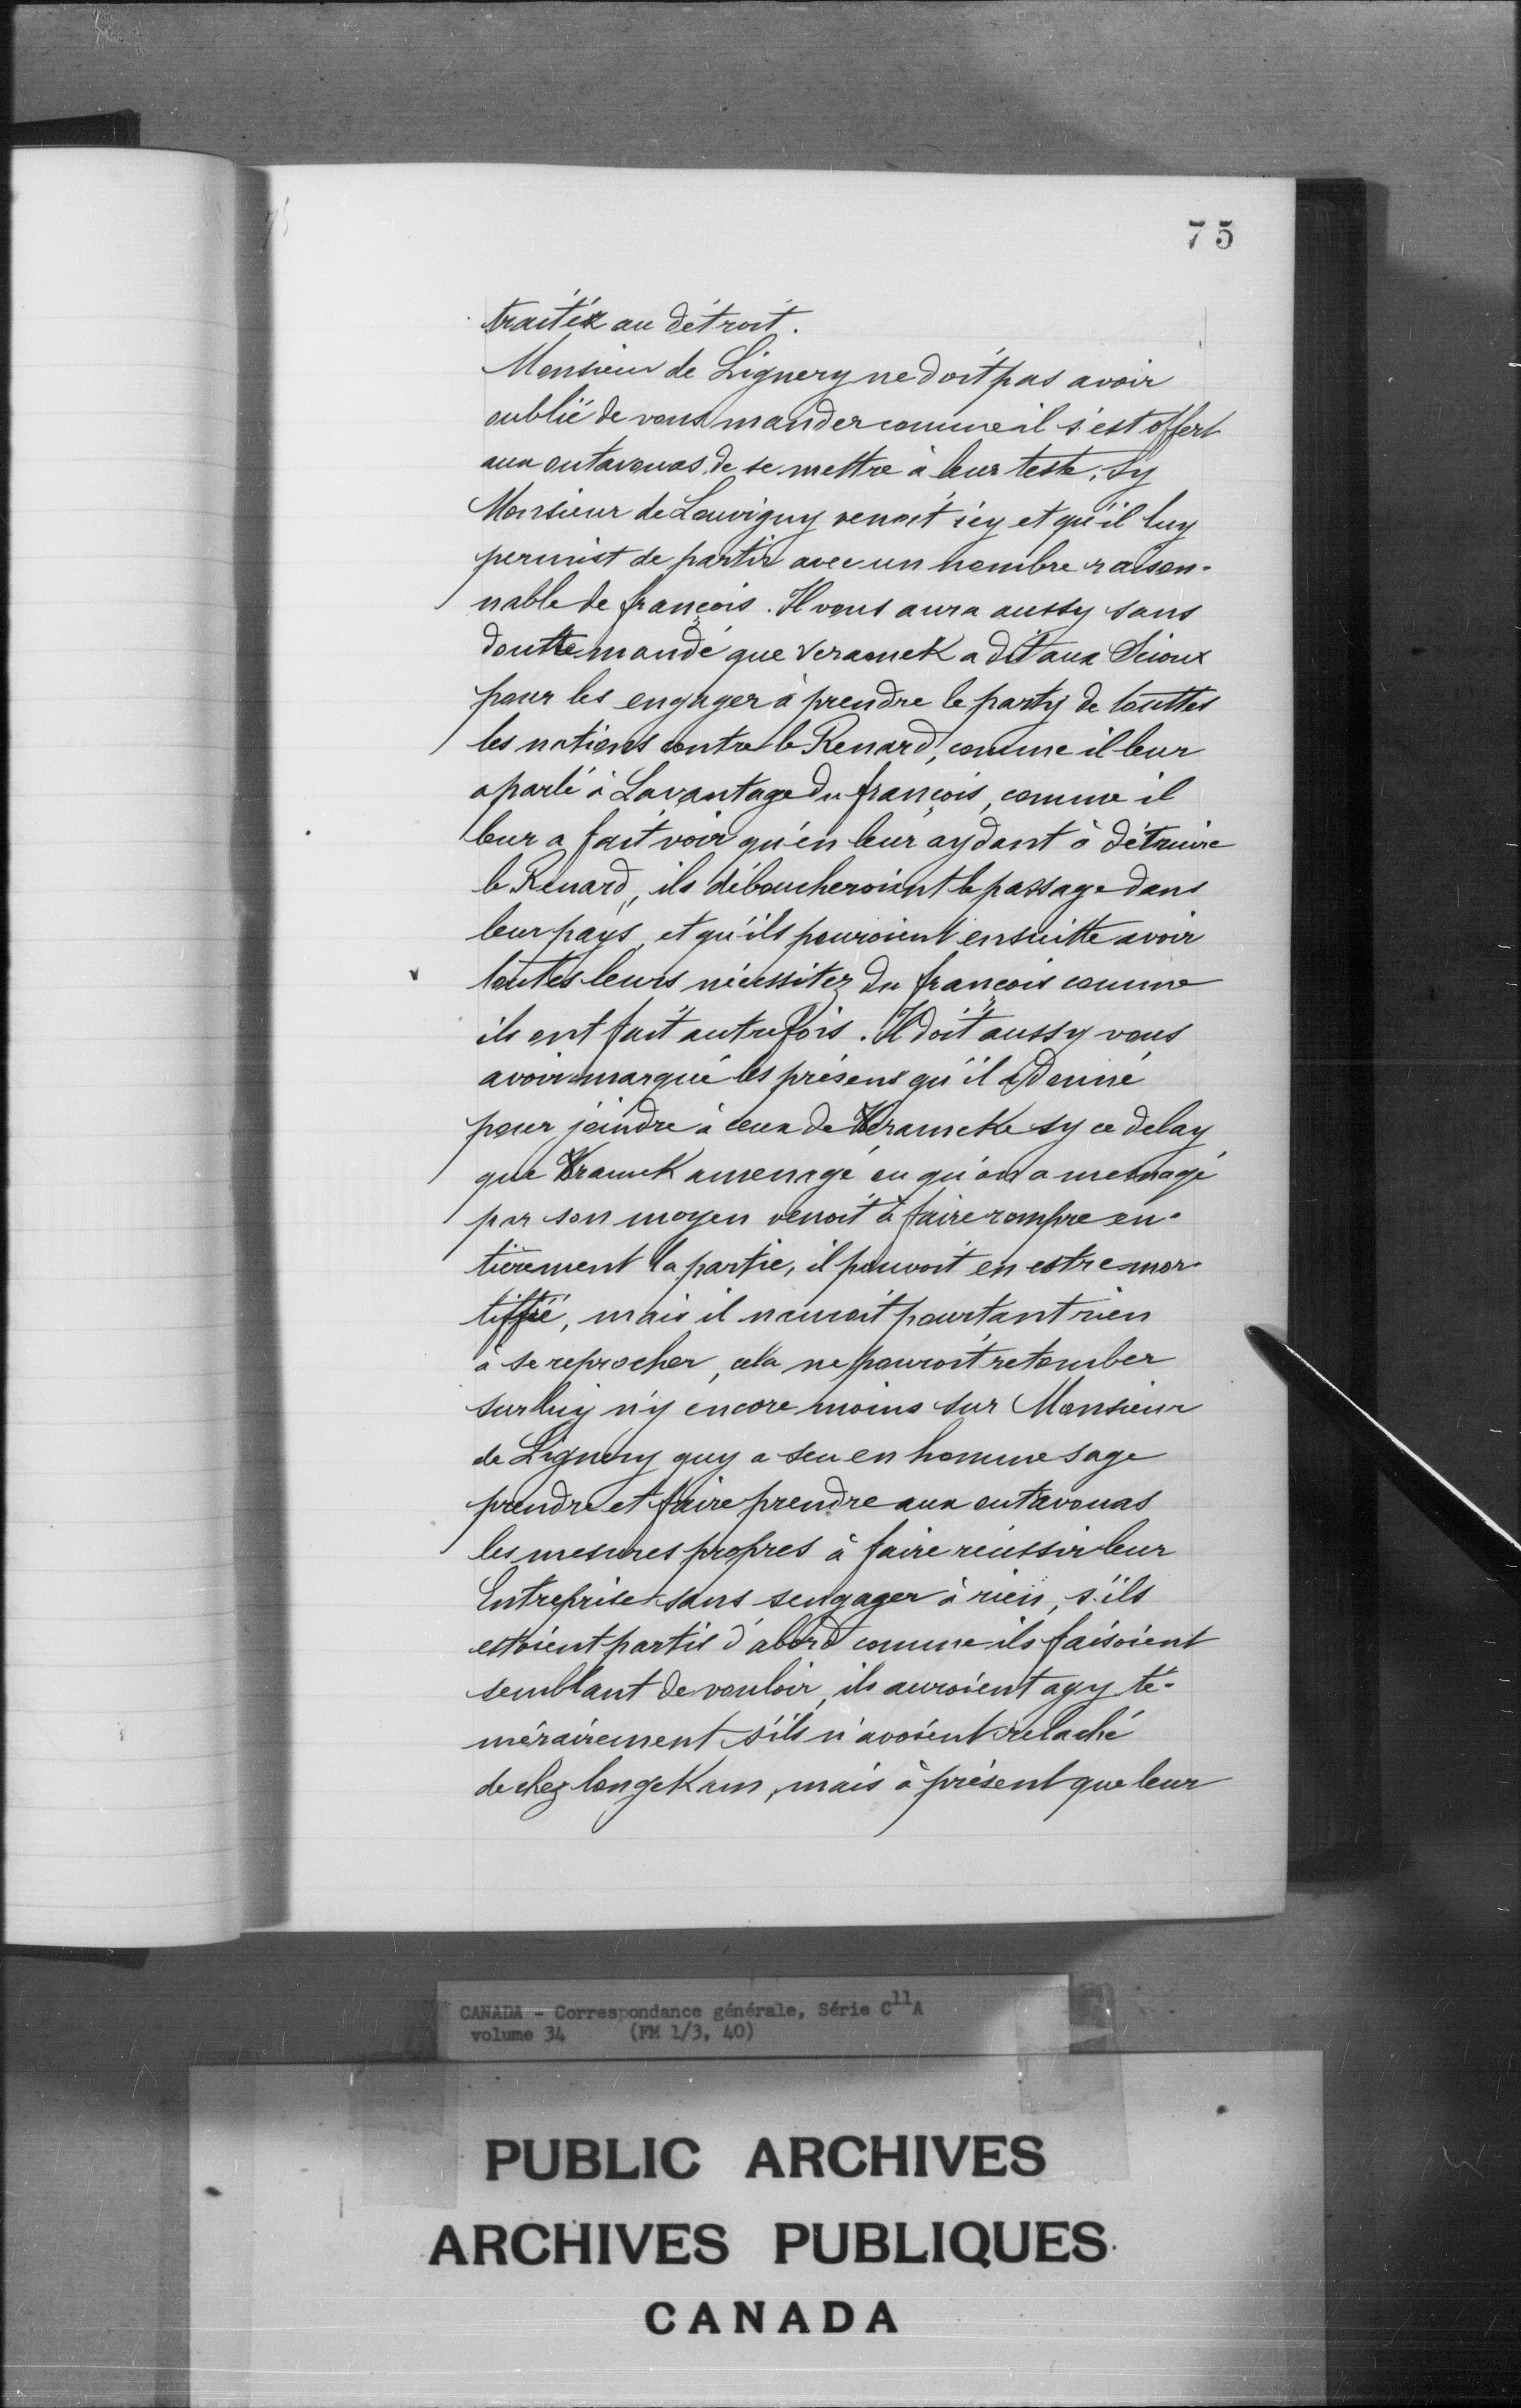 75
traitéx au détroit.
Monsieur de Lignery ne doit pas avoir
oublié de vous mander comme il s'est offert
aux outavouas de se mettre à leur teste, sy
Monsieur de Louvigny venoit icy et qu'il luy
permist de partir avec un nombre raison-
nable de françois. Il vous aura aussy sans
doutte mandé que veramek a dit aux Scioux
pour les engager à prendre le party de touttes
les nations contre le Renard, comme il leur
a parlé à Lavantage du françois, comme il
leur a fait voir qu'en leur aydant à détruire
le Renard, ils déboucheroient le passage dans
leur pays, et qu'ils pouroient ensuitte avoir
toutes leurs nécessitez du françois comme
ils ont fait autrefois. Il doit aussy vous
avoir marqué les présens qu'il a donné
pour joindre à ceux de Kerameke sy ce delay
que Kramek a menagé ou qu'on a menagé
par son moyen venoit à faire rompre en-
tièrement la partie, il pouvoit en estre mor-
tiffié, mais il nauroit pourtant rien
à se reprocher, cela ne pouroit retomber
sur luy n'y encore moins sur Monsieur
de Lignery quy a seu en homme sage
prendre et faire prendre aux outavouas
les mesures propres à faire réussir leur
Entreprise sans sengager à rien, s'ils
estoient partis d'abord comme ils faisoient
semblant de vouloir, ils auroient agy té-
mérairement s'ils n'avoient relaché
de chez longekam, mais à présent que leur
CANADA - Correspondance générale, Série C11A
volume 34 (FM 1/3, 40)
PUBLIC ARCHIVES
ARCHIVES PUBLIQUES
CANADA